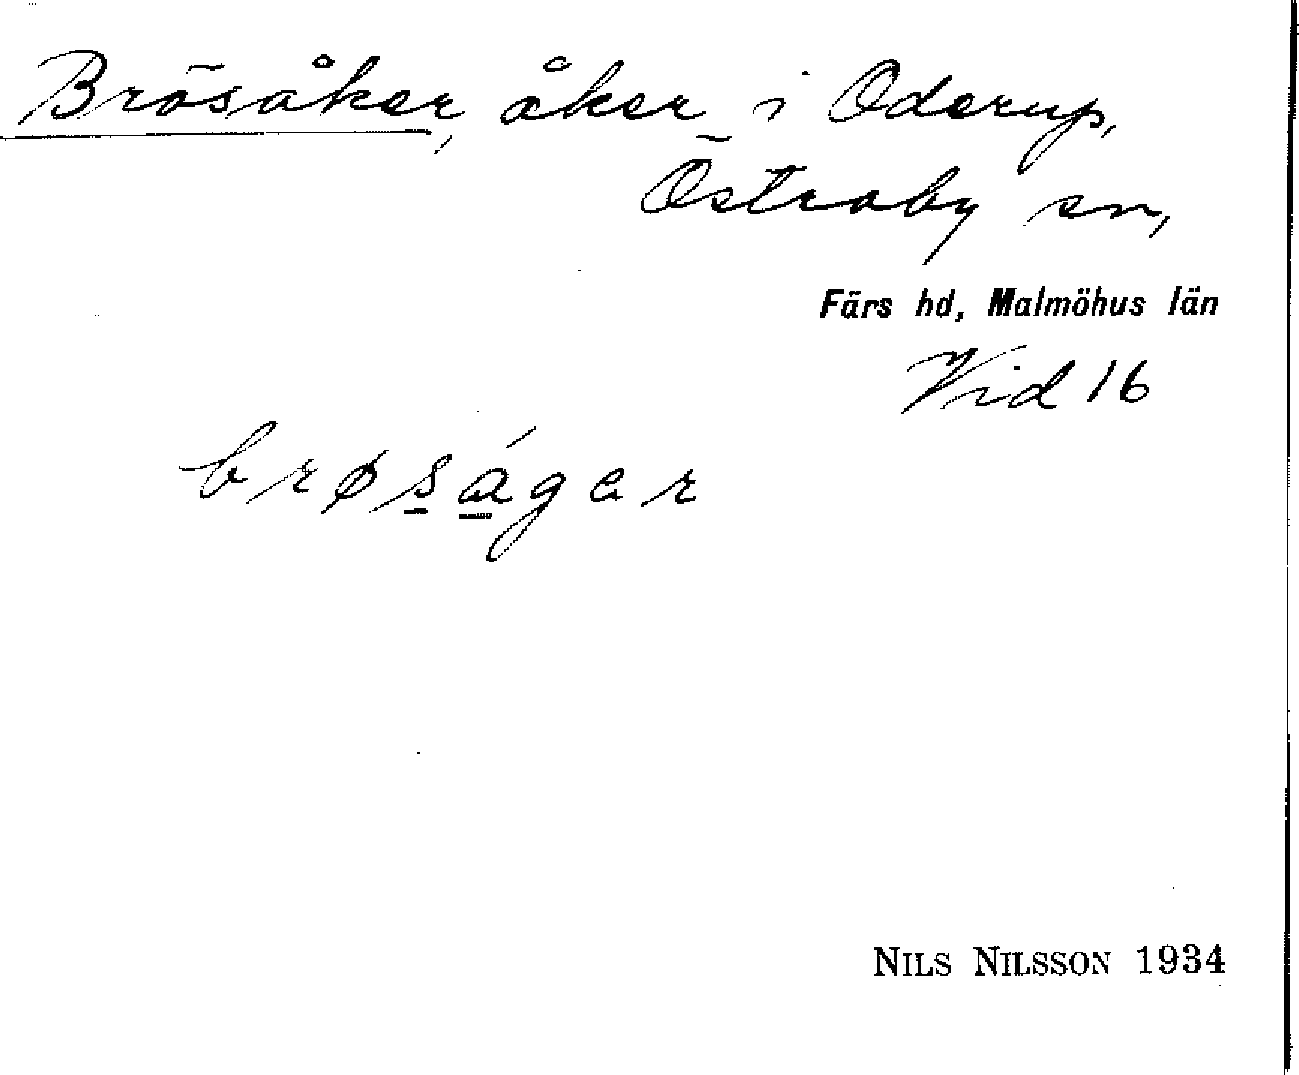 Brösåker, åker i Oderup,
Östraby sn,
Färs hd, Malmöhus län
Vid 16
brøságer
NILS NILSSON 1934